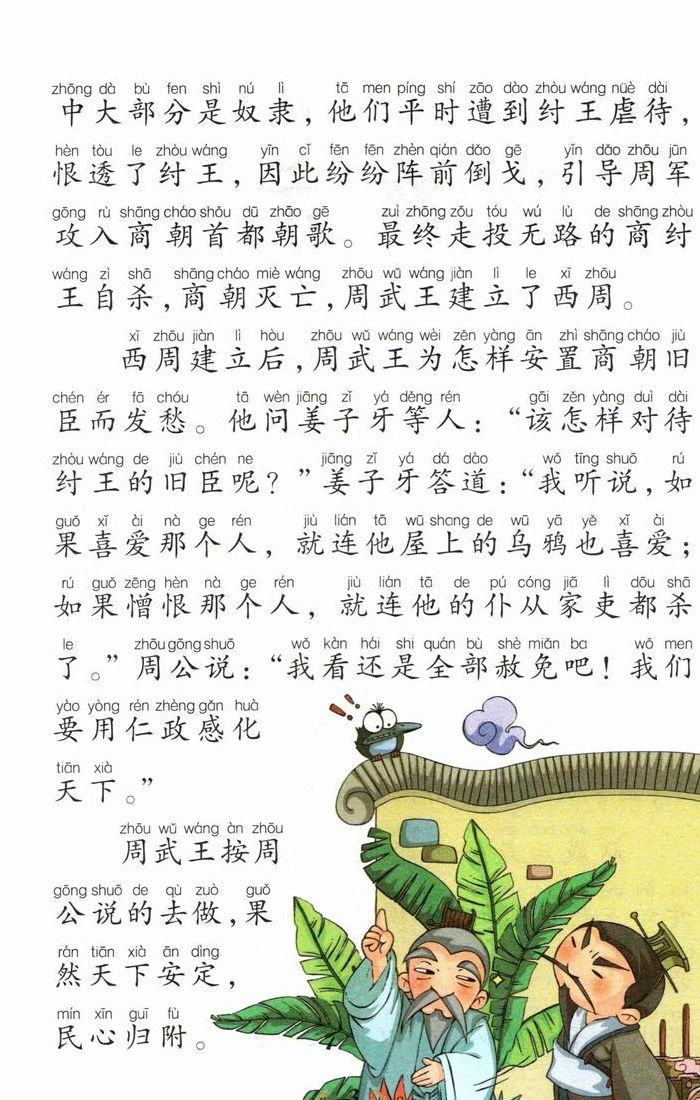 zhōng dà bù fen shì nú lì tā men píng shí zāo dào zhòu wáng nüè dài
中大部分是奴隶，他们平时遭到纣王虐待，
hèn tòu le zhòu wáng yīn cǐ fēn fēn zhèn qián dǎo gē yǐn dǎo zhōu jūn
恨透了纣王，因此纷纷阵前倒戈，引导周军
gōng rù shāng cháo shǒu dū zhāo gē zuì zhōng zǒu tóu wú lù de shāng zhòu
攻入商朝首都朝歌。最终走投无路的商纣
wáng zì shā shāng cháo miè wáng zhōu wǔ wáng jiàn lì le xī zhōu
王自杀，商朝灭亡，周武王建立了西周。
xī zhōu jiàn lì hòu zhōu wǔ wáng wèi zěn yàng ān zhì shāng cháo jiù
西周建立后，周武王为怎样安置商朝旧
chén ér fā chóu tā wèn jiāng zǐ yá děng rén gāi zěn yàng duì dài
臣而发愁。他问姜子牙等人：“该怎样对待
zhòu wáng de jiù chén ne jiāng zǐ yá dá dào wǒ tīng shuō rú
纣王的旧臣呢？”姜子牙答道：“我听说，如
guǒ xǐ ài nà ge rén jiù lián tā wū shang de wū yā yě xǐ ài
果喜爱那个人，就连他屋上的乌鸦也喜爱；
rú guǒ zēng hèn nà ge rén jiù lián tā de pú cóng jiā lì dōu shā
如果憎恨那个人，就连他的仆从家吏都杀
le zhōu gōng shuō wǒ kàn hái shi quán bù shè miǎn ba wǒ men
了。”周公说：“我看还是全部赦免吧！我们
yào yòng rén zhèng gǎn huà
要用仁政感化
tiān xià
天下。”
zhōu wǔ wáng àn zhōu
周武王按周
gōng shuō de qù zuò guǒ
公说的去做，果
rán tiān xià ān dìng
然天下安定，
mín xīn guī fù
民心归附。